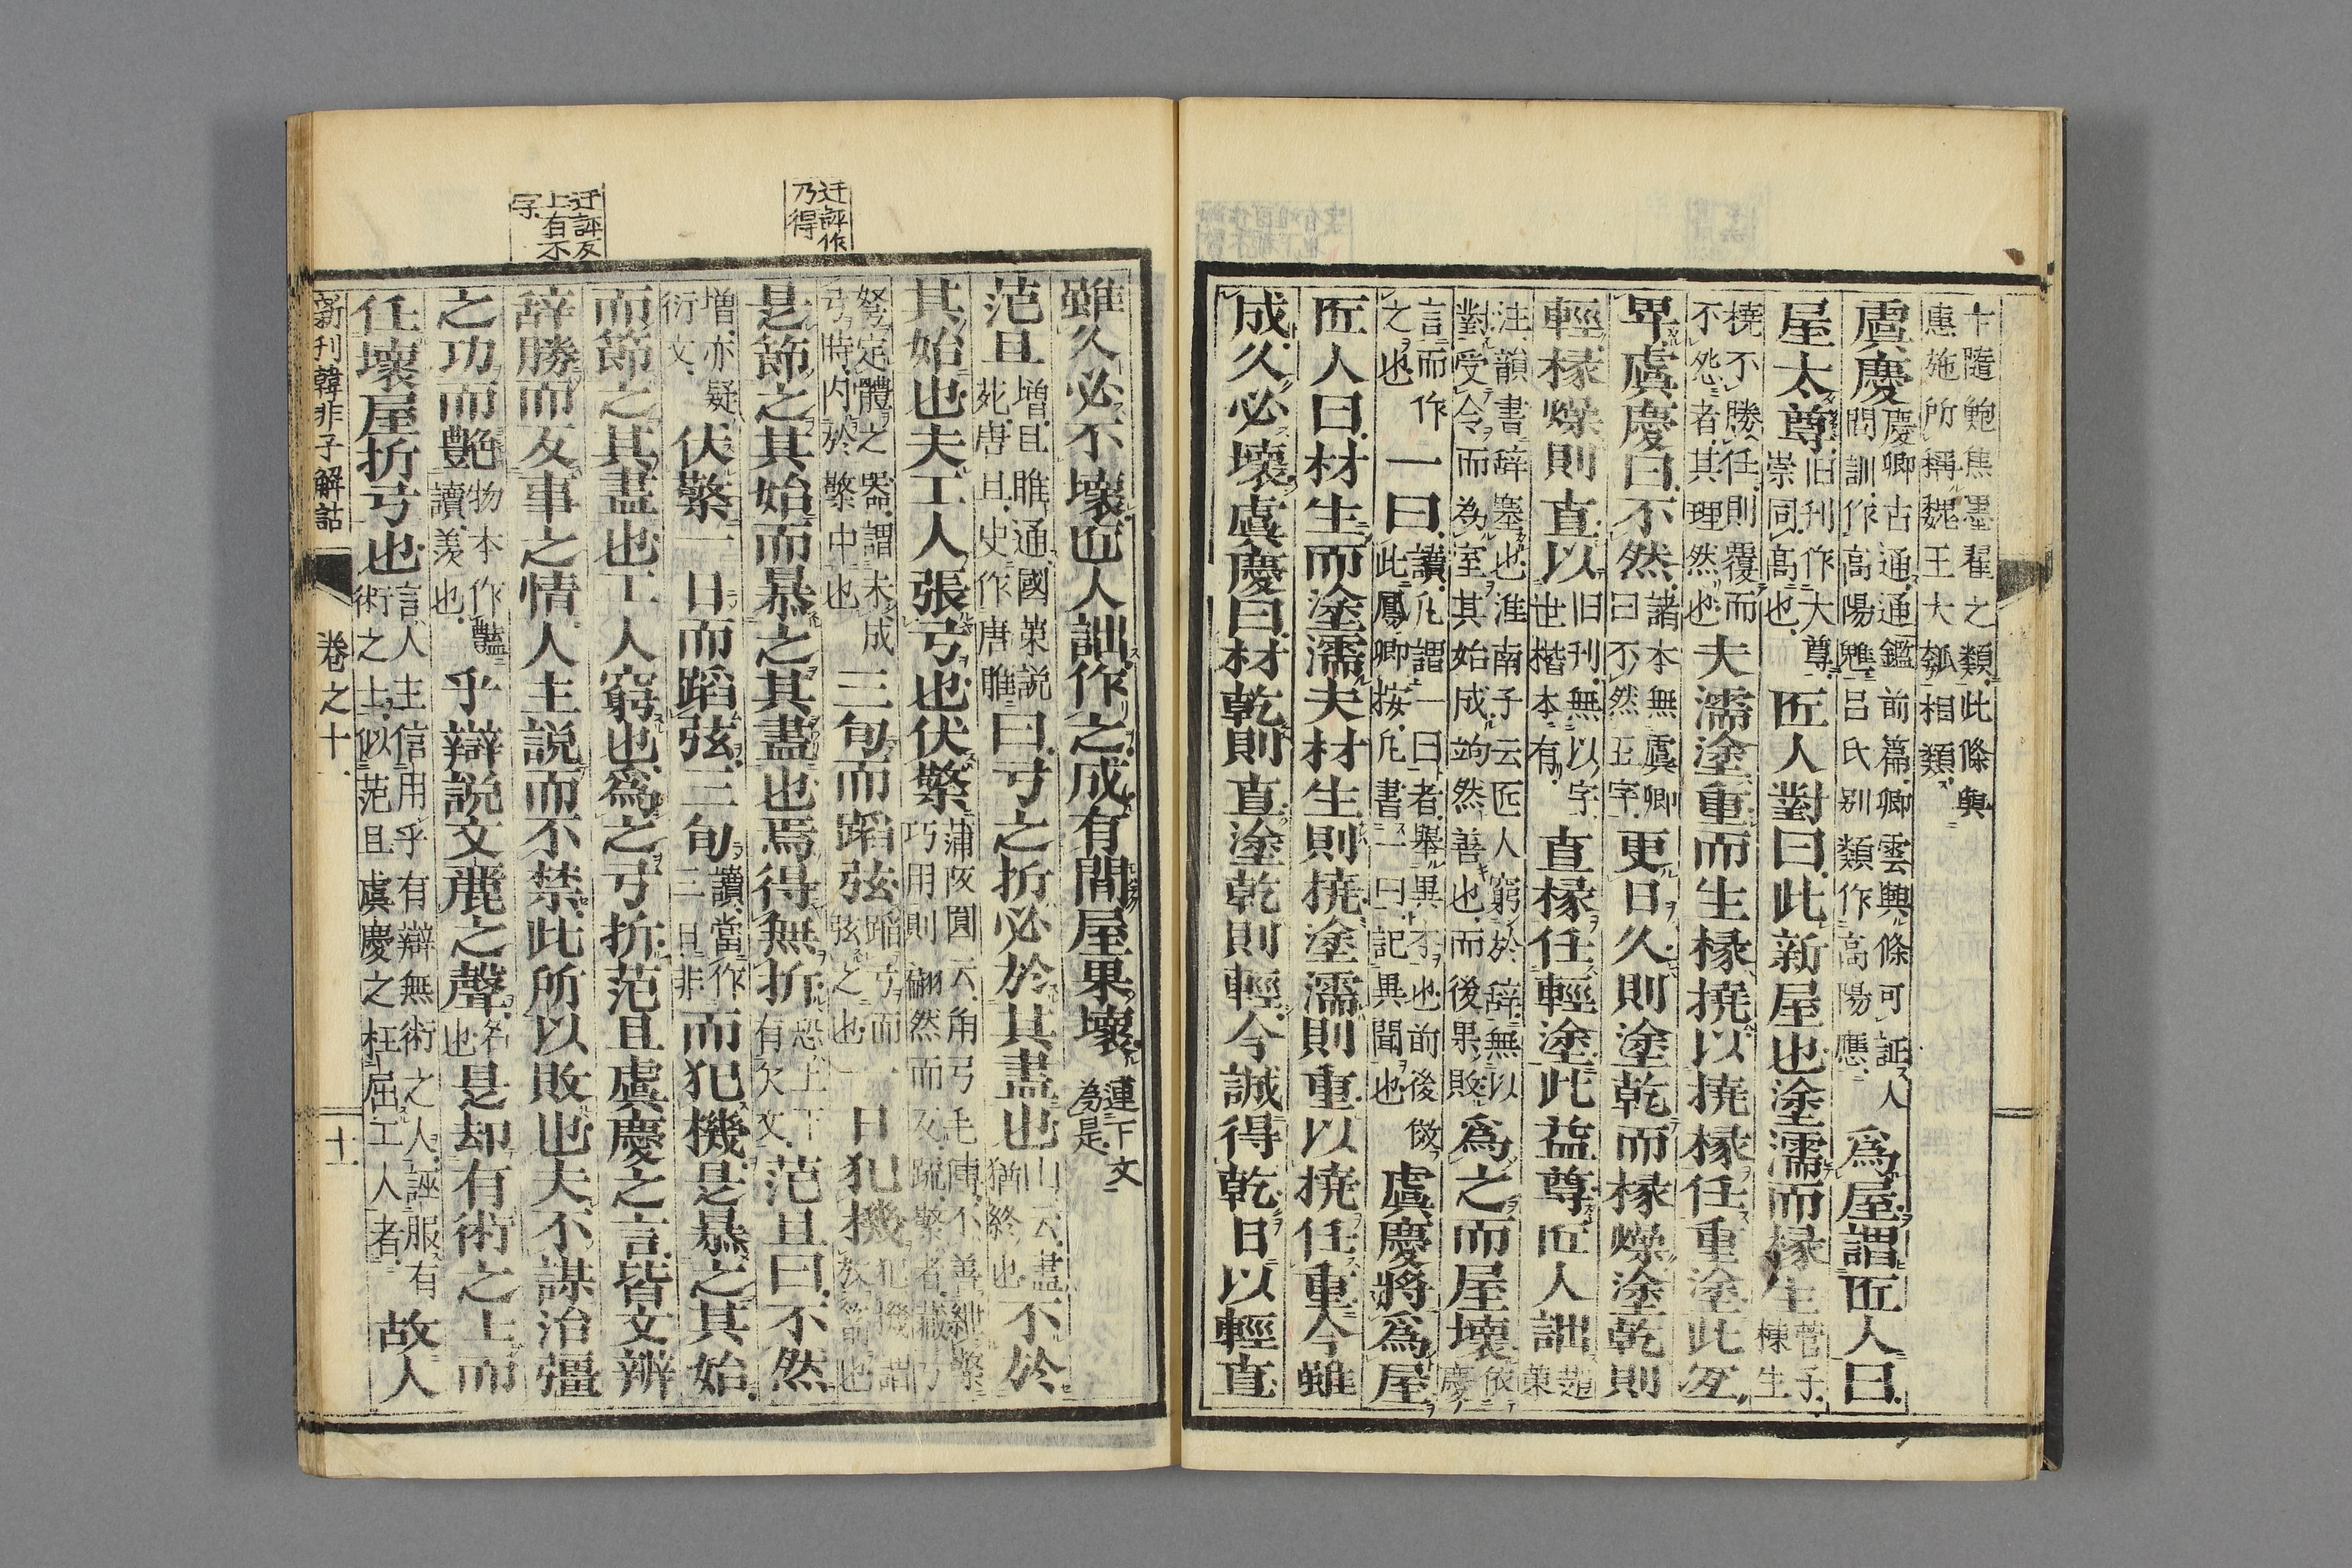 十隨鮑焦墨翟之類此條與
惠施所稱魏王大瓠相類
虞慶慶卿古通通鑑前篇卿雲輿條可証人
間訓作高陽魋呂氏別類作高陽應為屋謂匠人曰
屋太尊旧刊作大尊崇同高也匠人對曰此新屋也塗濡而椽生菅子棟生
橈不勝任則覆而不怨者其理然也夫濡塗重而生椽撓以撓椽任重塗此冝
卑虞慶曰不然諸本無虞卿曰不然五字更日久則塗乾而椽燥塗乾則
輕椽燥則直以旧刊無以字世楷本有直椽任輕塗此益尊匠人詘趙策
注韻書辞塞也淮南子云匠人窮於辞無以
對受令而為室其始成竘然善也而後果敗為之而屋壞依慶
言而作之也一曰讀凡謂一曰者舉異不也前後倣
此鳳卿按凡書一曰記異聞也虞慶將為屋
匠人曰材生而塗濡夫材生則撓塗濡則重以撓任重今雖
成久必壞虞慶曰材乾則直塗乾則輕今誠得乾日以輕直
迂評作乃得
迂評反上有不字
雖久必不壞匠人詘作之成有間屋果壞連下文為是
范且増且睢通國策説苑唐且史作唐睢曰弓之折必於其盡也山云盡猶終也不於
其始也夫工人張弓也伏檠蒲阪圓云角弓毛傳不善紲檠
巧用則翩然而反疏檠者藏乃
弩定體之器謂未成弓時内於檠中也三旬而蹈弦蹈弓而弦之也一日犯機犯機謂放箭也
是節之其始而暴之其盡也焉得無折恐上下有欠文范且曰不然
増亦疑衍文伏檠一日而蹈弦三旬讀當作三旦非而犯機是暴之其始
而節之其盡也工人窮也為之弓折范且虞慶之言皆文辨
辞勝而反事之情人主説而不禁此所以敗也夫不謀治彊
之功而艷物本作豔讀羨也乎辯説文麗之聲名也是却有術之士而
任壞屋折弓也言人主信用乎有辯無術之人誣服有
術之上似范且虞慶之枉屈工人者故人
新刊韓非子解詁 卷之十一 十一